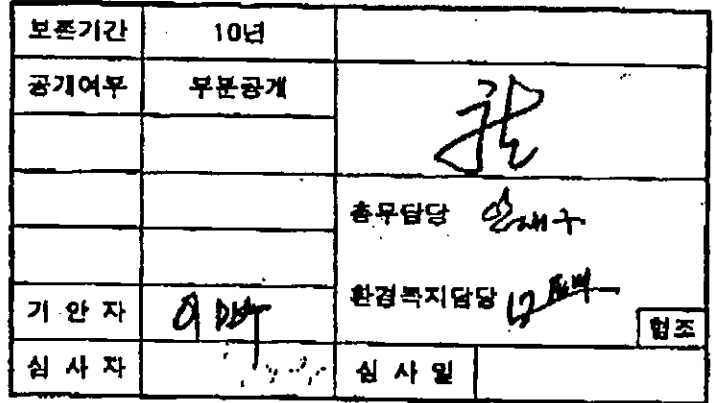 보존기간 10년
공개여부 부분공개
총무담당
환경복지담당
기 안 자
협조
심 사 자 심 사 일